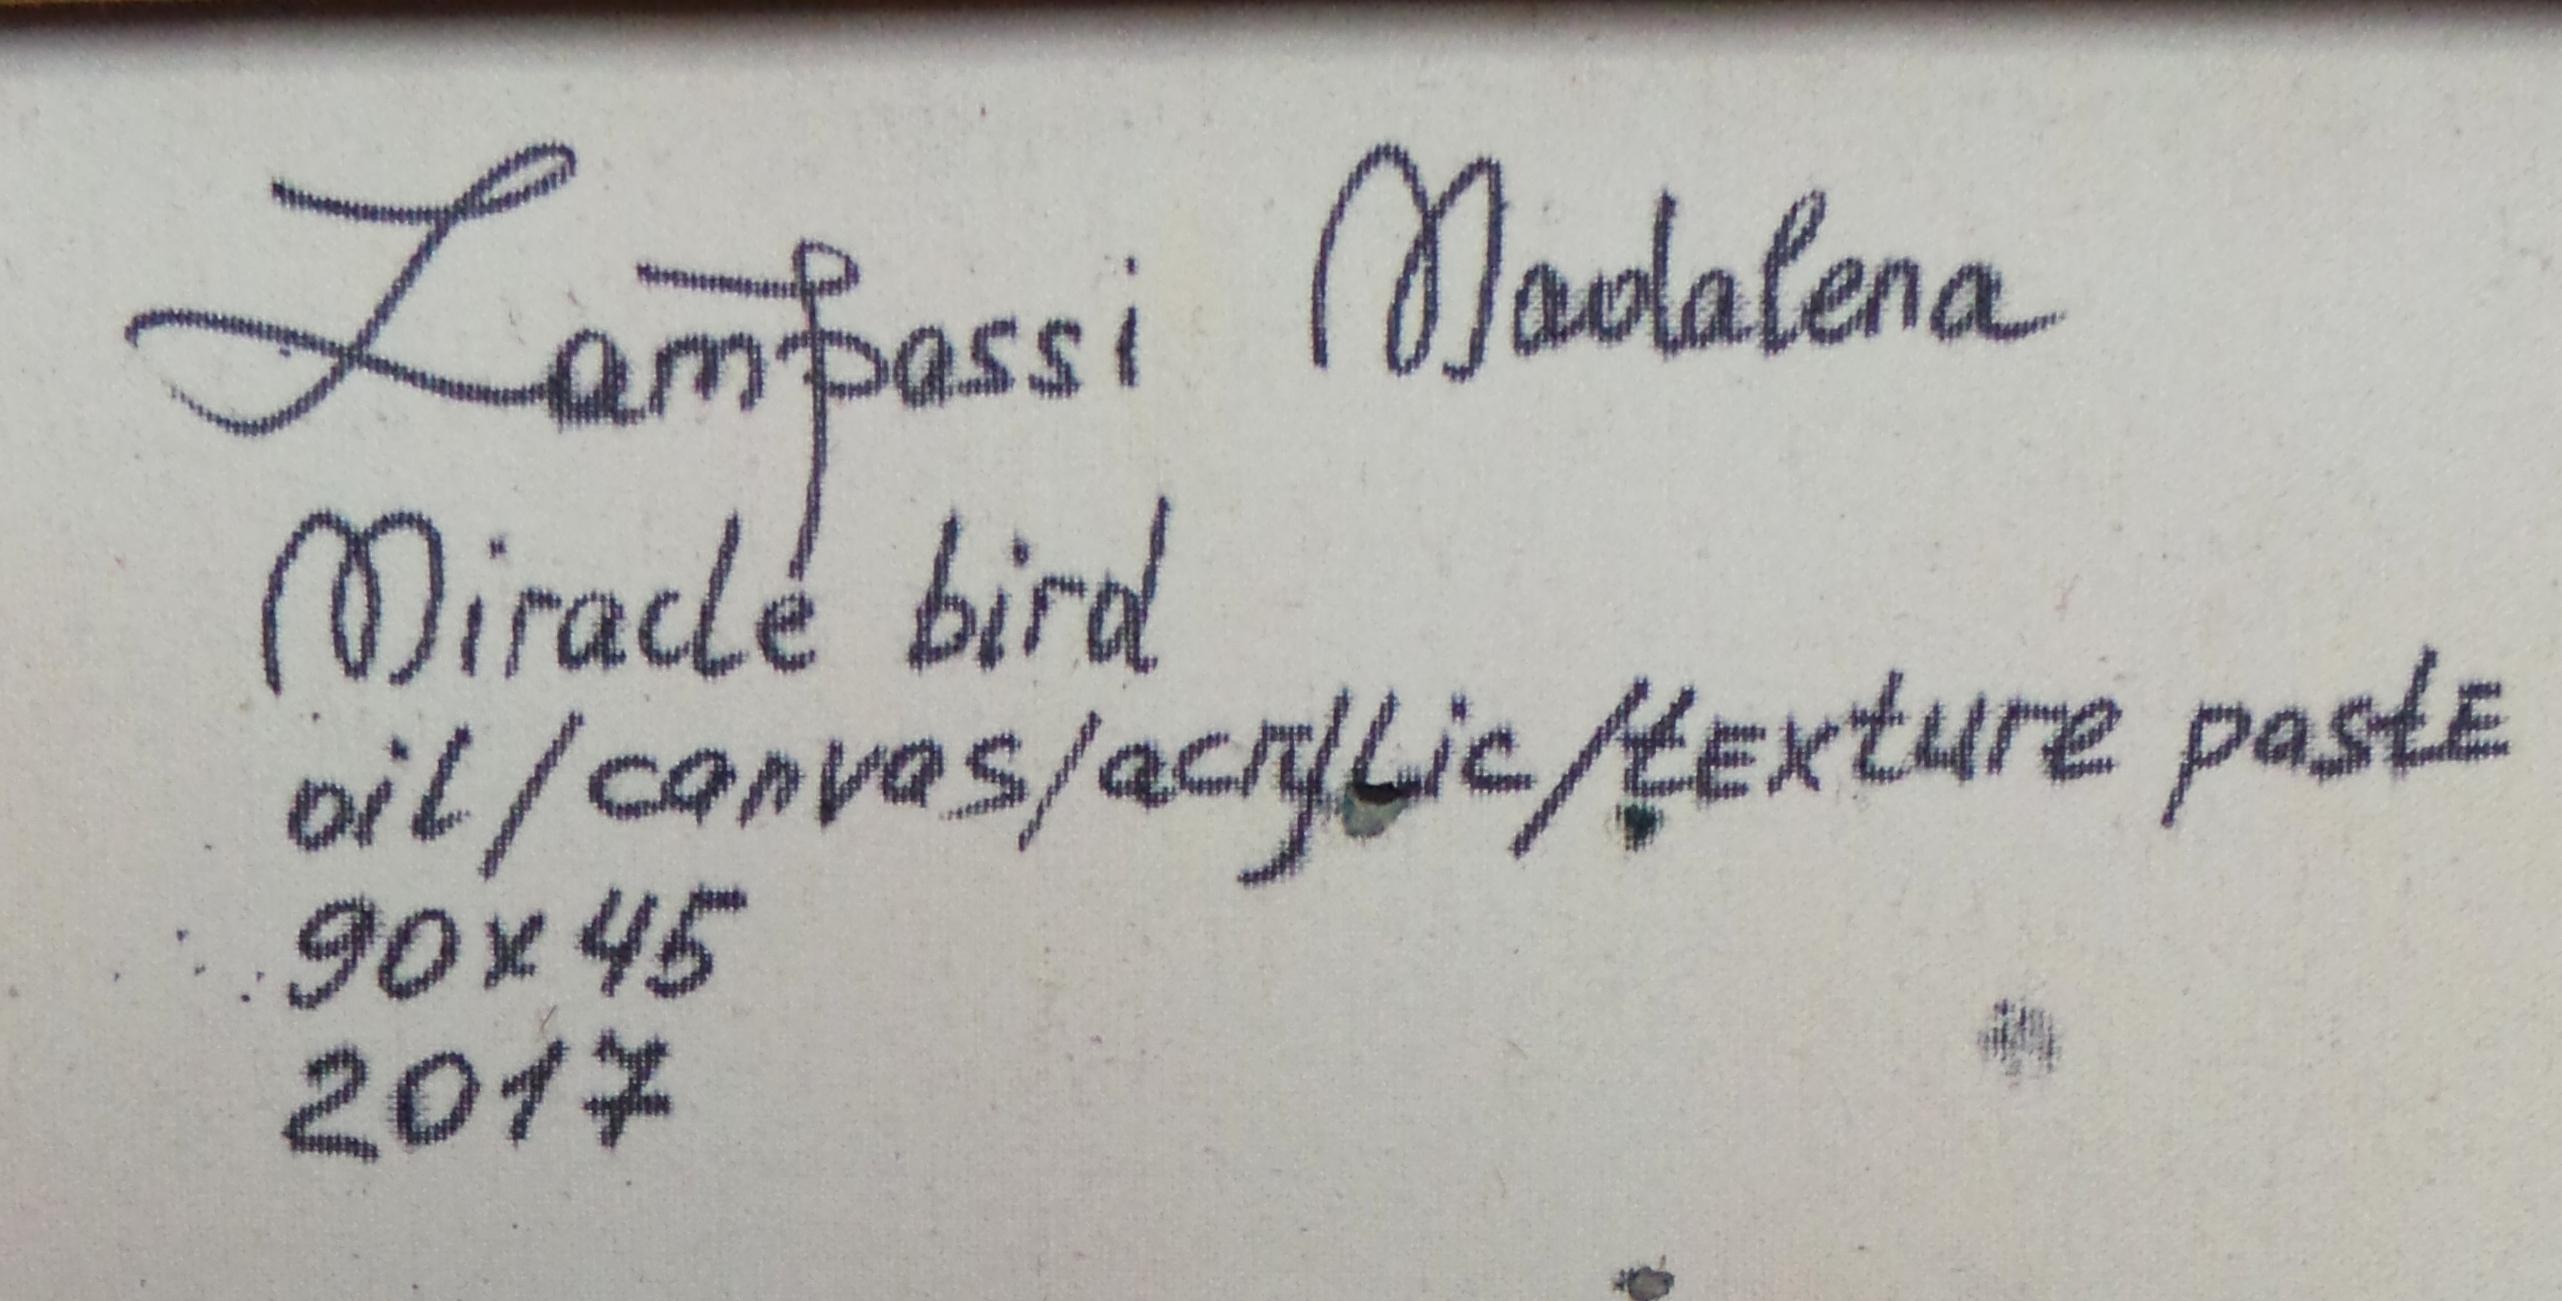 Lampassi Madalena
Miracle bird
oil/canvas/acryllic/texture paste
90x45
2017